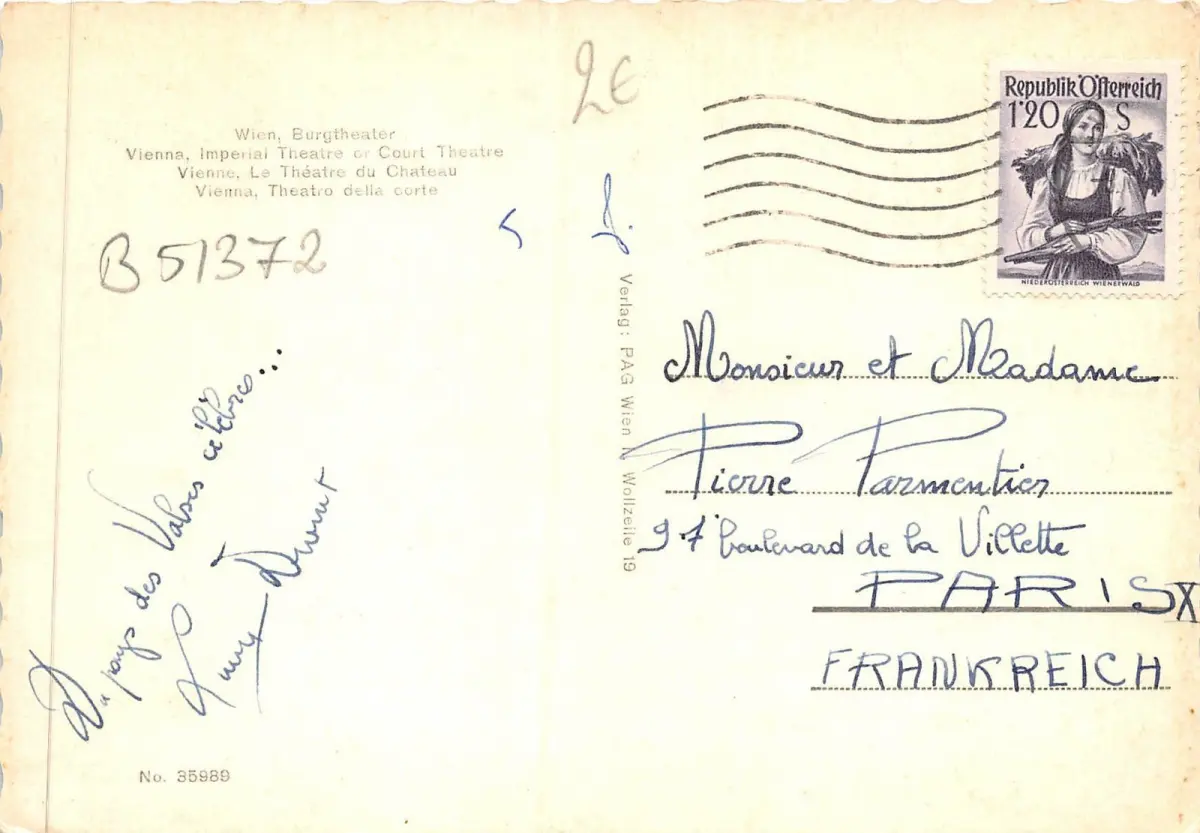 Wien, Burgtheater
Vienna, Imperial Theatre or Court Theatre
Vienne, Le Théatre du Chateau
Vienna, Theatro della corte
B 51372
2€
Republik Österreich
1'20 S
NIEDERÖSTERREICH WIENERWALD
Du pays des Valses célèbres...
Verlag: PAG Wien I, Wollzeile 19
Monsieur et Madame
Pierre Parmentier
97 boulevard de la Villette
PARIS X
FRANKREICH
No. 35989